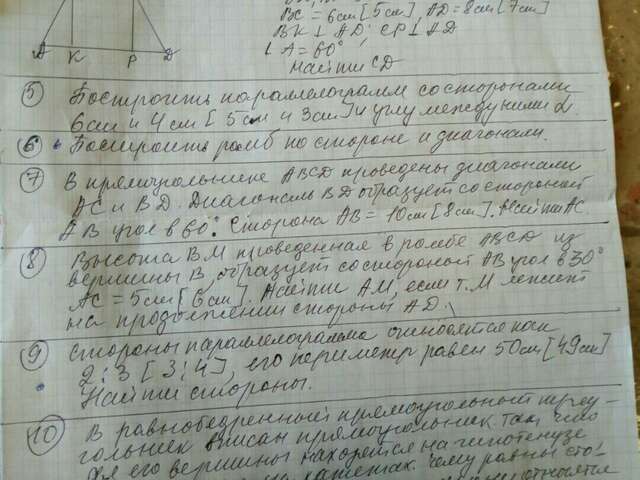 BC = 6см [5см], AD = 8см [7см]
BK ⊥ AD; CP ⊥ AD
∠A = 60°
Найти CD
A K P D
5 Построить параллелограмм со сторонами
6см и 4см [5см и 3см] и углу между ними α.
6 Построить ромб по стороне и диагонали.
7 В прямоугольнике ABCD проведены диагонали
AC и BD. Диагональ BD образует со стороной
AB угол в 60°. Сторона AB = 10см [8см]. Найти AC.
8 Высота BM проведенная в ромбе ABCD из
вершины B, образует со стороной AB угол в 30°
AC = 5см [6см]. Найти AM, если т. M лежит
на продолжении стороны AD.
9 Стороны параллелограмма относятся как
2:3 [3:4], его периметр равен 50см [49см]
Найти стороны.
10 В равнобедренный прямоугольный треу-
гольник вписан прямоугольник так, что
его вершины находятся на гипотенузе
на катетах. Чему равны сто-